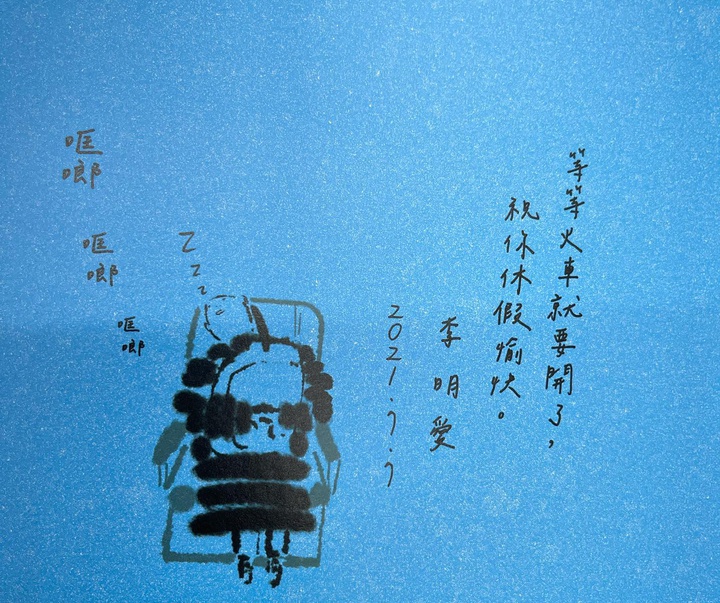 等等火車就要開了，
祝你休假愉快。
李明愛
2021.7.7
Z
z
z
哐啷
哐啷
哐啷